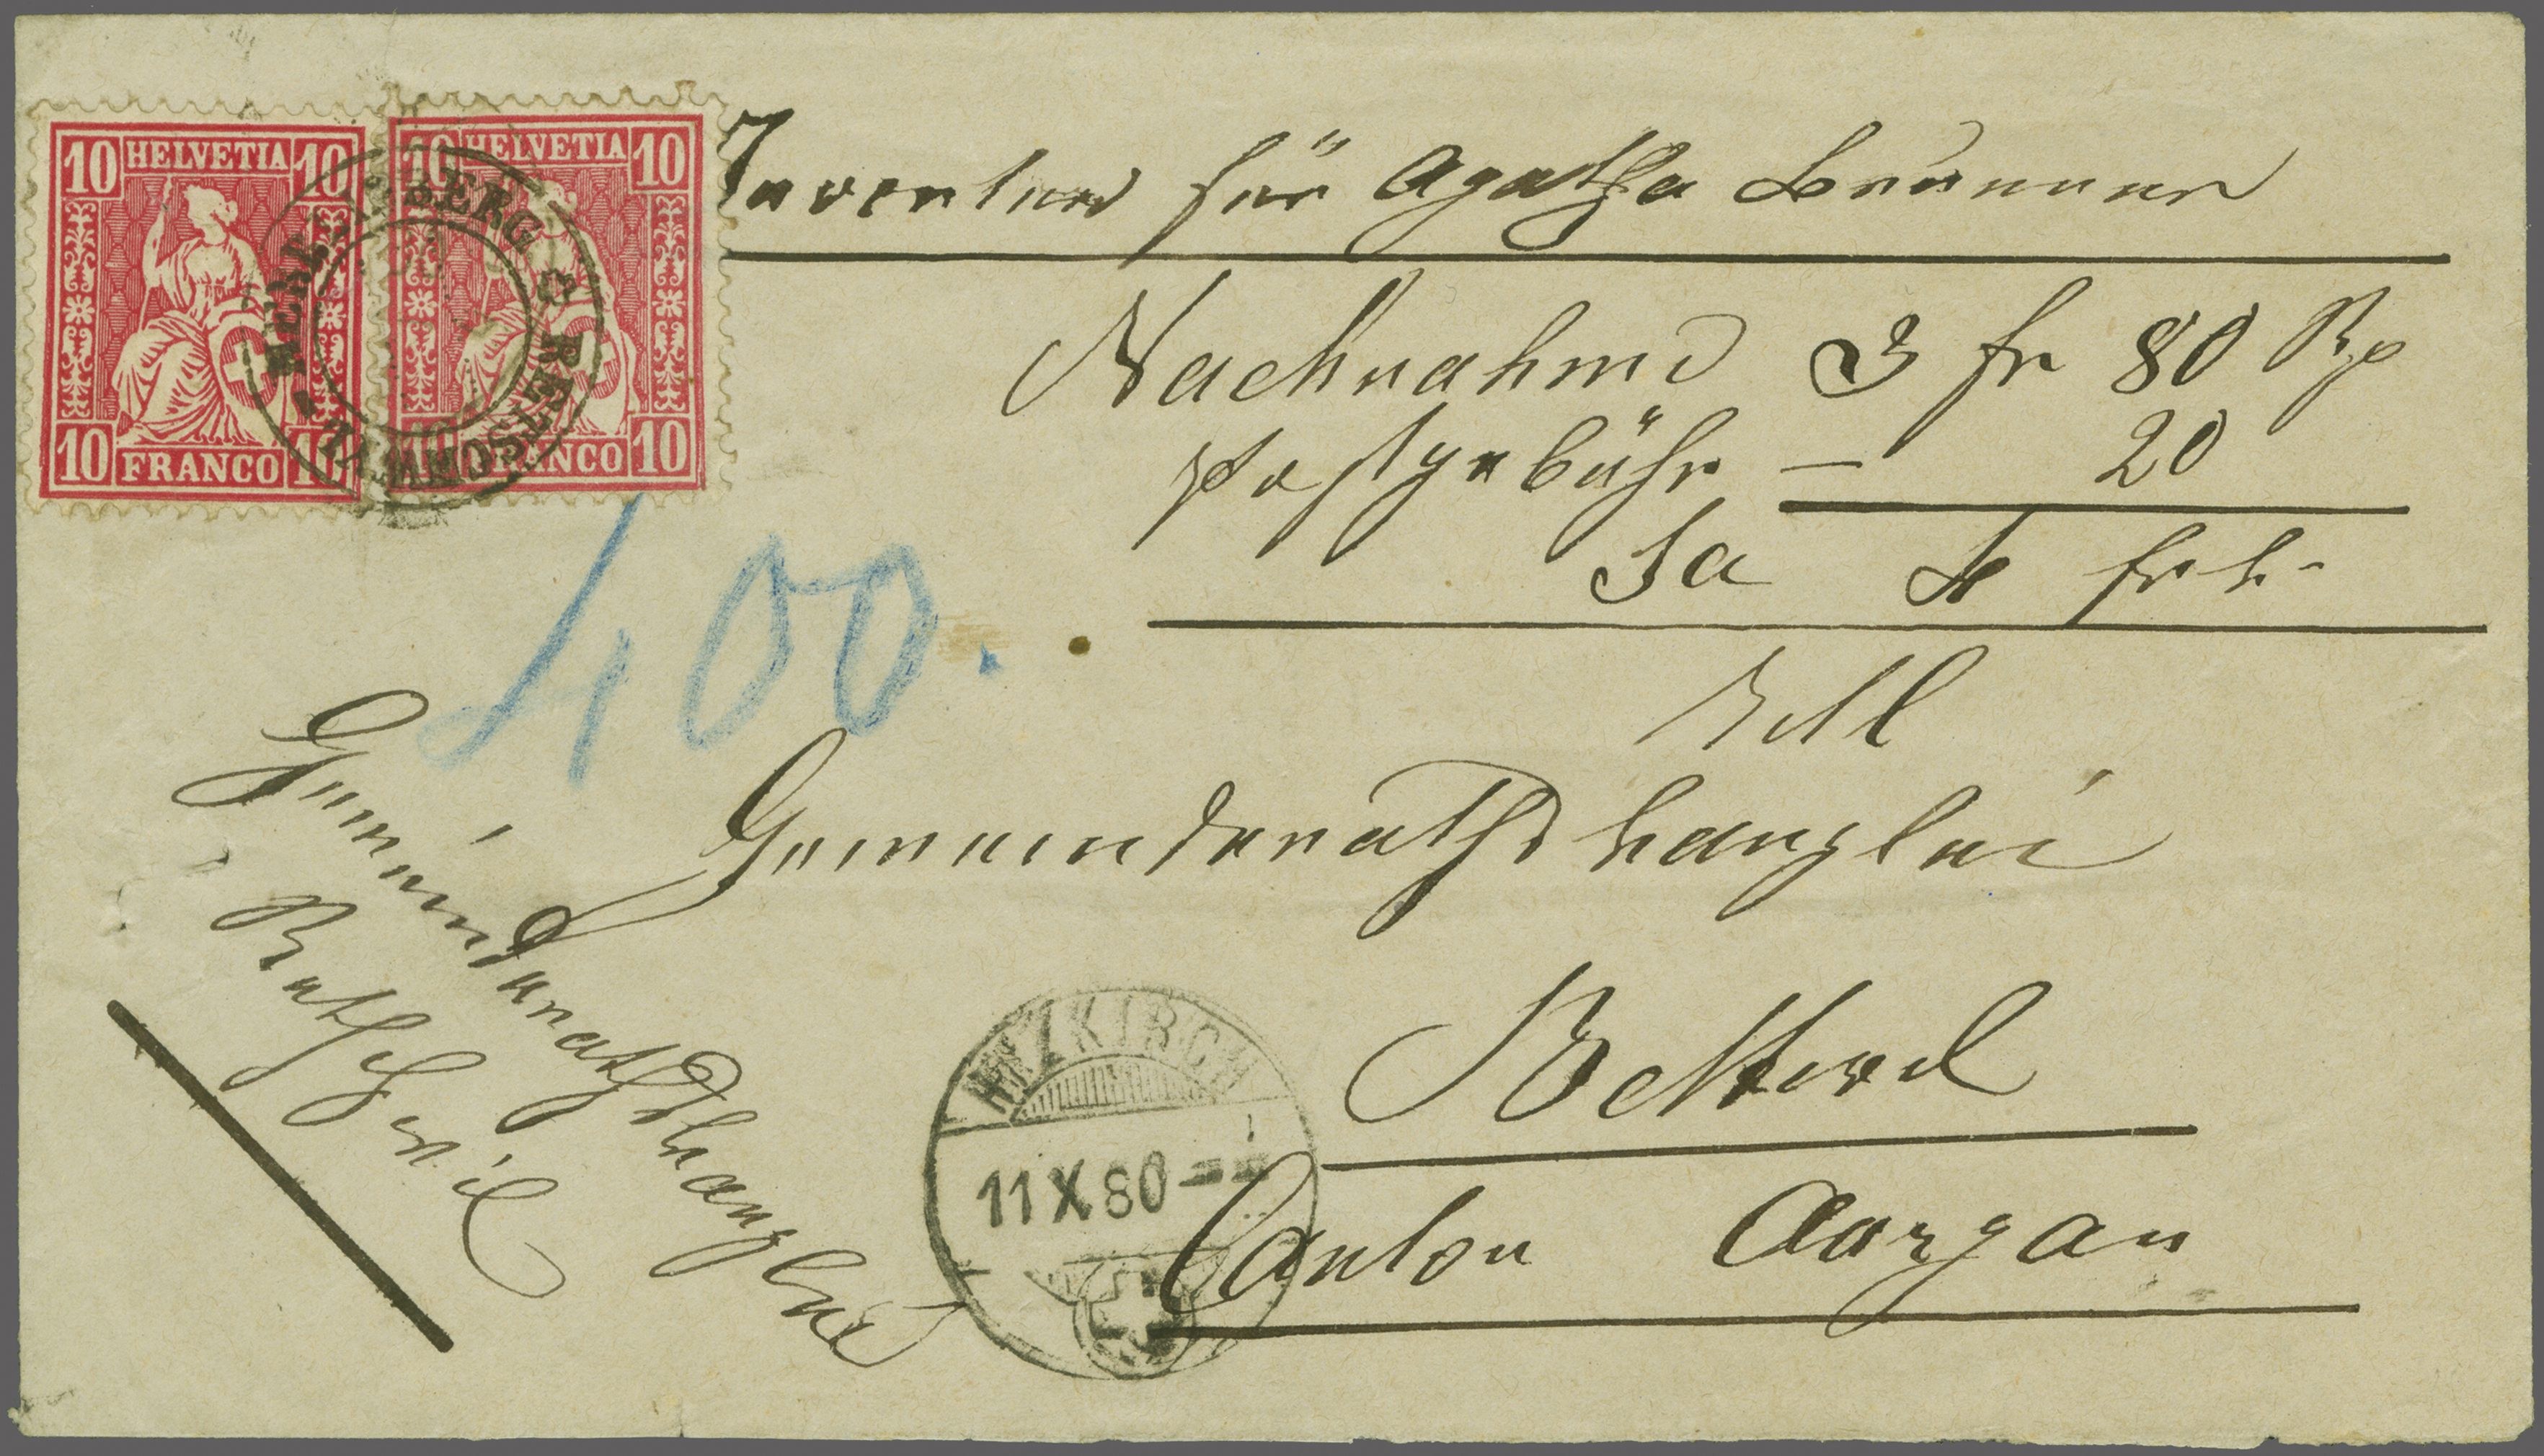 10 HELVETIA 10
10 FRANCO 10
10 HELVETIA 10
10 FRANCO 10
BERG O. RETSCHWYL
Inventur für Agatha Brunner
Nachnahme 3 fr 80 Rp
Postgebühr — 20
Sa 4 fr
400.
Gemeinderathskanzlei
Bettwil
Canton Aargau
Gemeinderathskanzlei
Retschwil
HITZKIRCH
11 X 80